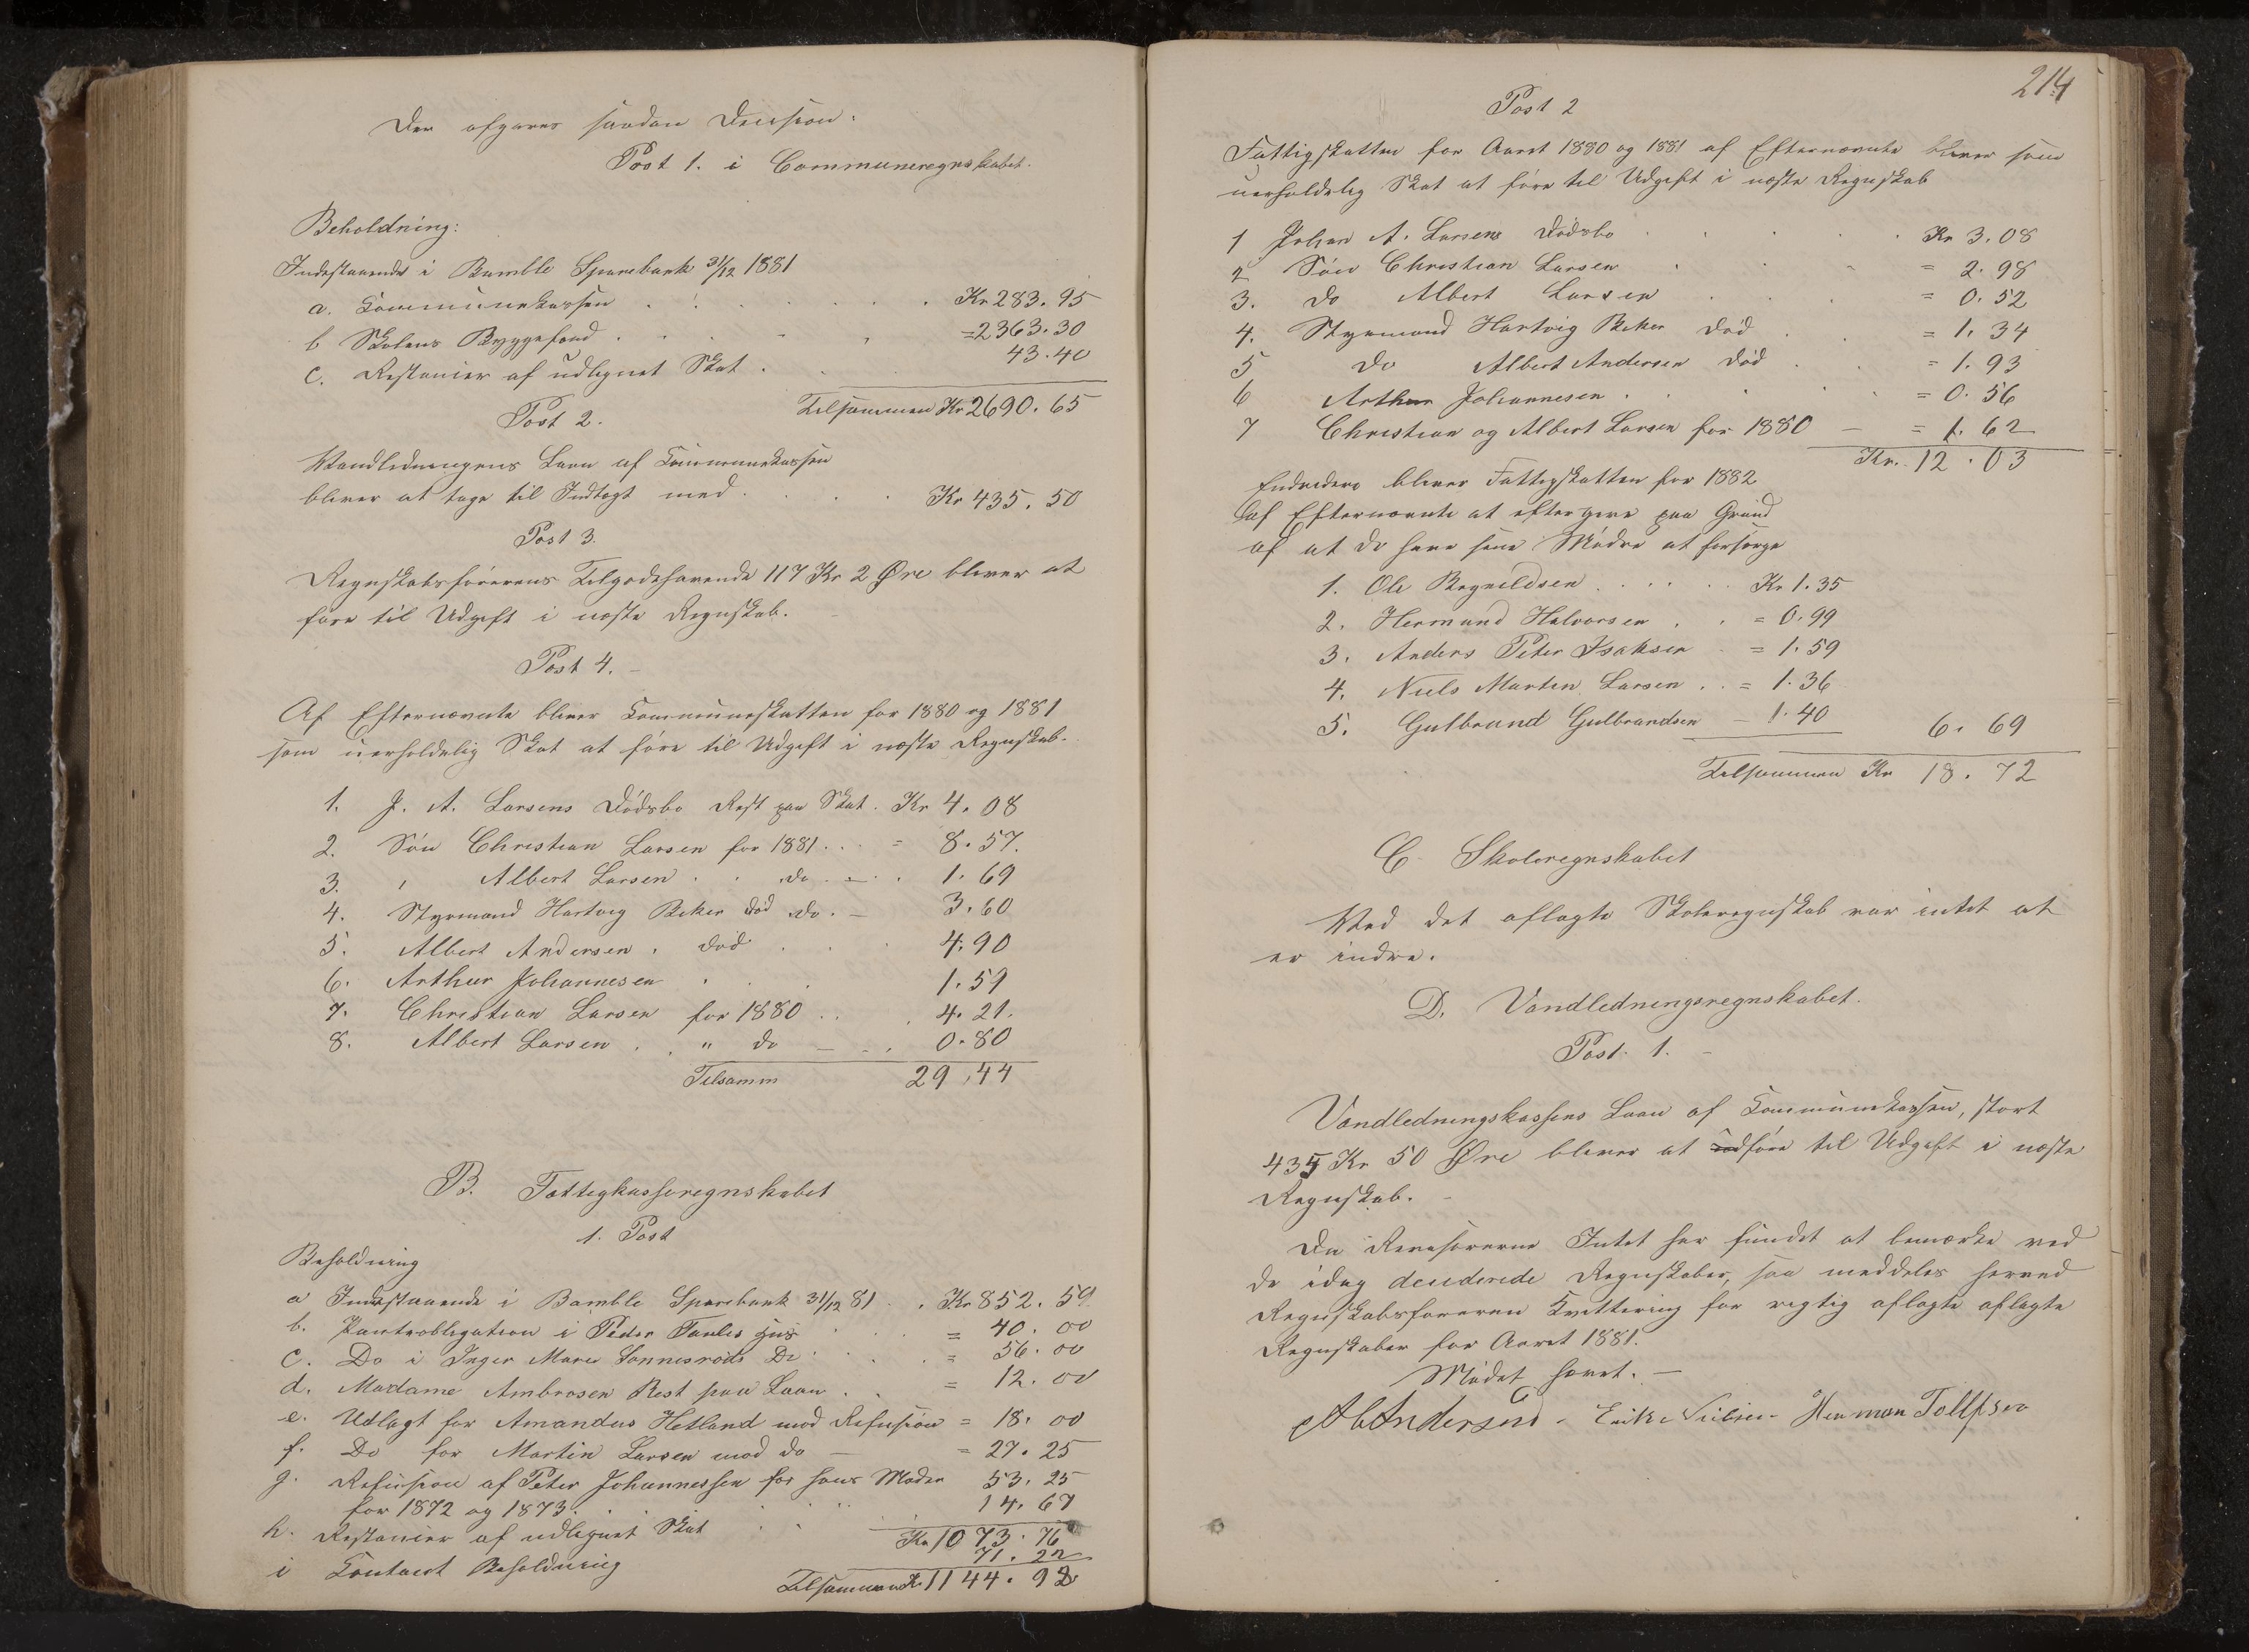 Der afgaves saadan Decision:
Post 1. i Communeregnskabet.
Beholdning:
Indestaaende i Bamble Sparebank 31/12 1881
a. Communekassen . . . . . . Kr 283.95
b Skolens Byggefond . . . . = 2363.30
c. Restancer af udlignet Skat . . 43.40
Tilsammen Kr 2690.65
Post 2.
Vandledningens Laan af Communekassen
bliver at tage til Indtægt med . . . . Kr 435.50
Post 3.
Regnskabsførerens Tilgodehavende 117 Kr 2 Øre bliver at
føre til Udgift i næste Regnskab.
Post 4. –
Af Efternævnte bliver Communeskatten for 1880 og 1881
som uerholdelig Skat at føre til Udgift i næste Regnskab.
1. J. A. Larsens Dødsbo Rest paa Skat. Kr 4.08
2. Søn Christian Larsen for 1881 . . = 8.57.
3. " Albert Larsen . . do – . 1.69
4. Styrmand Hartvig Beker død do. – 3.60
5. Albert Andersen . død . . . 4.90
6. Arthur Johannesen . . . 1.59
7. Christian Larsen for 1880 . . . 4.21.
8. Albert Larsen . . " do – – . 0.80
Tilsamm 29.44
B. Fattigkasseregnskabet
1. Post
Beholdning
a Indestaaende i Bamble Sparebank 31/12 81 . . Kr 852.59
b. Panteobligation i Peder Hus . . = 40.00
c. Do i Inger Marie Do . . . = 56.00
d. Madame Ambrosen Rest paa Laan . . = 12.00
e. Udlagt for Amandus Hetland mod Refusion = 18.00
f. Do for Martin Larsen mod do – = 27.25
g. Refusion af Peter Johannessen for hans Moder 53.25
for 1872 og 1873.
h. Restancer af udlignet Skat . . . 14.67
Kr 1073.76
i Contant Beholdning 71.22
Tilsammen Kr 1144.98
214
Post 2
Fattigskatten for Aaret 1880 og 1881 af Efternævnte bliver som
uerholdelig Skat at føre til Udgift i næste Regnskab
1 Johan A. Larsens Dødsbo . . . . . Kr 3.08
2 Søn Christian Larsen . . . = 2.98
3. do Albert Larsen . . . = 0.52
4. Styrmand Hartvig Beker død . . = 1.34
5 do Albert Andersen død . . = 1.93
6 Arthur Johannesen . . . . = 0.56
7 Christian og Albert Larsen for 1880 – = 1.62
Kr. 12.03
Endvidere bliver Fattigskatten for 1882
af Efternævnte at eftergive paa Grund
af at de have sine Mødre at forsørge
1. Ole Regnildsen . . . . . Kr 1.35
2. Hermund Halvorsen . . = 0.99
3. Anders Peter Isaksen . = 1.59
4. Niels Martin Larsen . . = 1.36
5. Gulbrand Gulbrandsen – 1.40 6.69
Tilsammen Kr 18.72
C Skoleregnskabet
Ved det aflagte Skoleregnskab var intet at
erindre.
D. Vandledningsregnskabet.
Post. 1. –
Vandledningskassens Laan af Communekassen, stort
435 Kr 50 Øre bliver at udføre til Udgift i næste
Regnskab. –
Da Revisorerne Intet har fundet at bemærke ved
de idag deciderede Regnskaber, saa meddeles herved
Regnskabsføreren Kvittering for rigtig aflagte aflagte
Regnskaber for Aaret 1881.
Mødet hævet. –
Ab Andersen . Herman Tollefsen